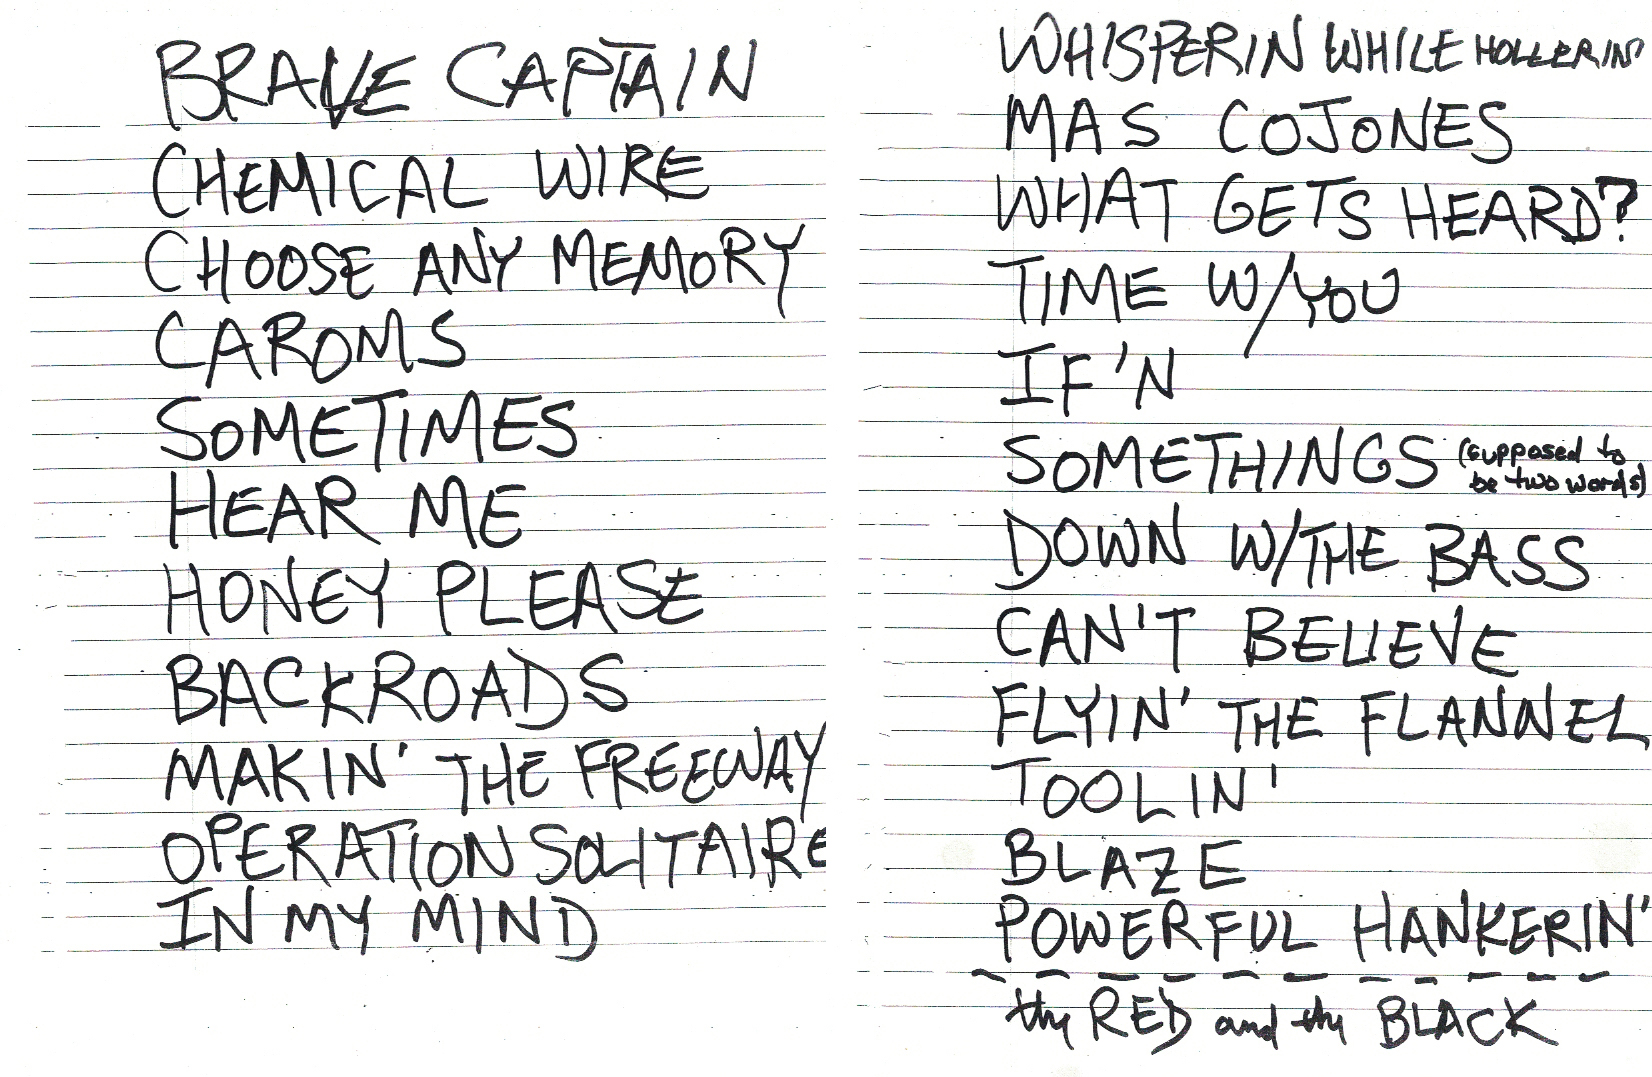 BRAVE CAPTAIN
CHEMICAL WIRE
CHOOSE ANY MEMORY
CAROMS
SOMETIMES
HEAR ME
HONEY PLEASE
BACKROADS
MAKIN' THE FREEWAY
OPERATION SOLITAIRE
IN MY MIND
WHISPERIN WHILE HOLLERIN'
MAS COJONES
WHAT GETS HEARD?
TIME W/YOU
IF'N
SOMETHINGS (supposed to
be two words)
DOWN W/THE BASS
CAN'T BELIEVE
FLYIN' THE FLANNEL
TOOLIN'
BLAZE
POWERFUL HANKERIN'
thy RED and thy BLACK